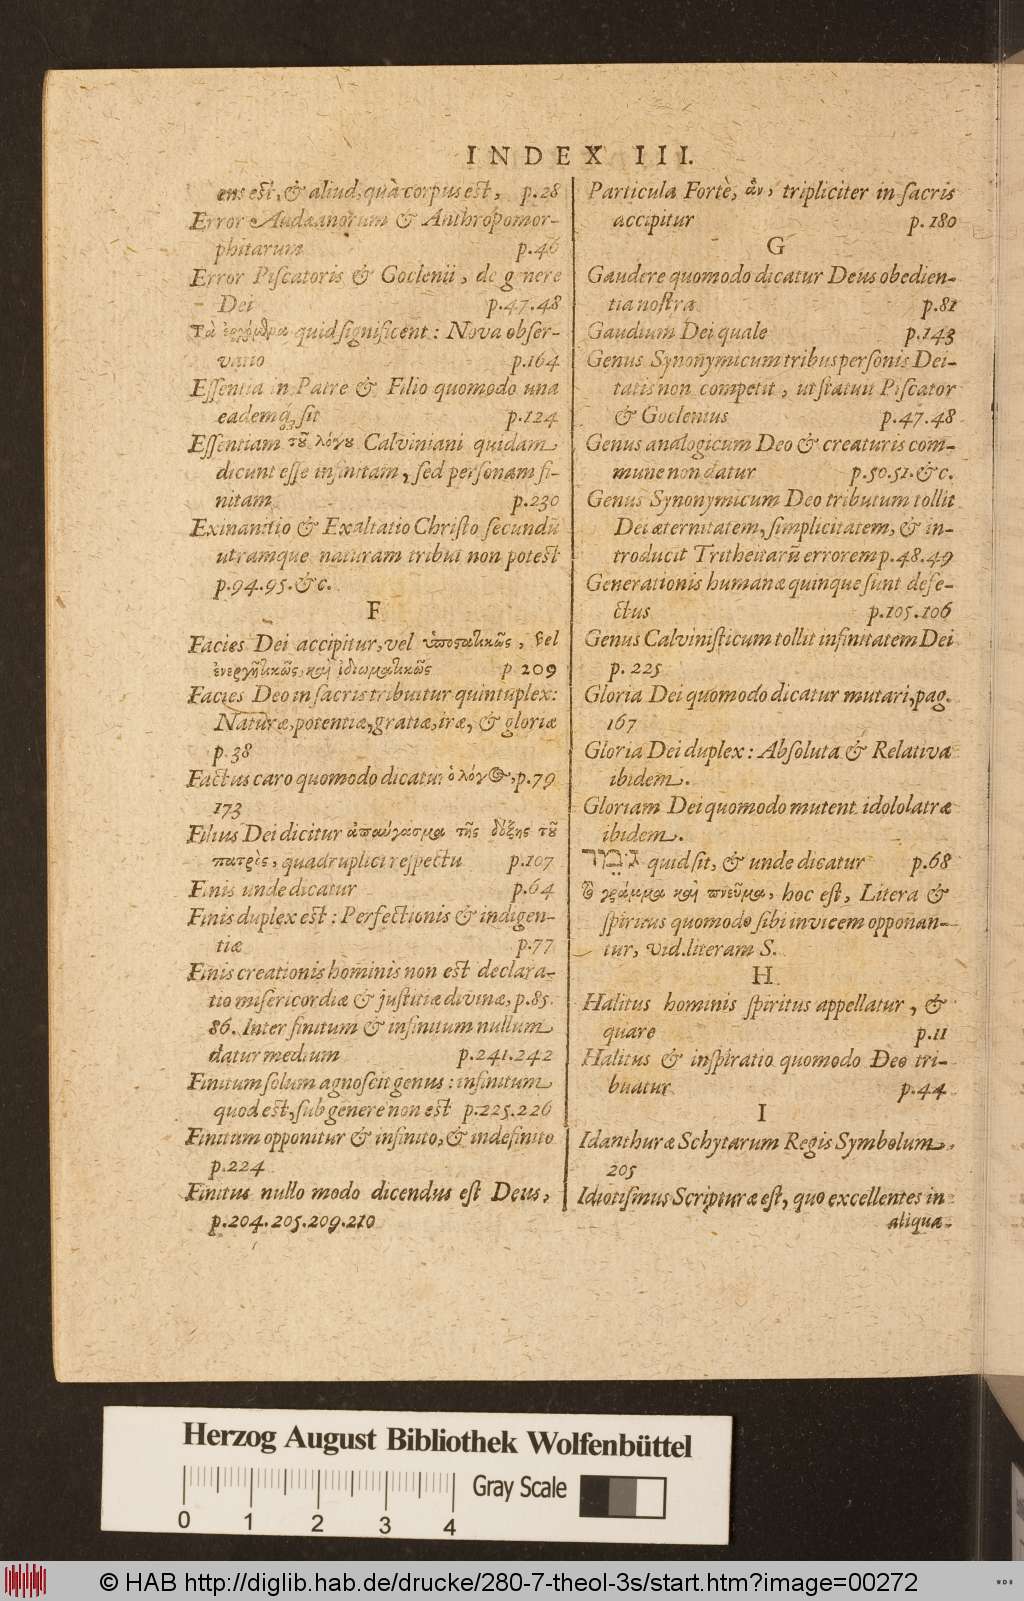 INDEX III.
ens est, & aliud, quà corpus est, p.28
Error Audæanorum & Anthropomor-
phitarum p.46
Error Piscatoris & Goclenii, de genere
Dei p.47.48
Τὰ ἐρχόμενα quid significent: Nova obser-
vatio p.164
Essentia in Patre & Filio quomodo una
eademq; sit p.124
Essentiam τοῦ λόγου Calviniani quidam
dicunt esse infinitam, sed personam fi-
nitam p.230
Exinanitio & Exaltatio Christo secundũ
utramque naturam tribui non potest
p.94.95.&c.
F
Facies Dei accipitur, vel ὑποστατικῶς, vel
ἐνεργητικῶς, καὶ ἰδιωματικῶς p 209
Facies Deo in sacris tribuitur quintuplex:
Naturæ, potentiæ, gratiæ, iræ, & gloriæ
p.38
Factus caro quomodo dicatur ὁ λόγος, p.79
173
Filius Dei dicitur ἀπαύγασμα τῆς δόξης τοῦ
πατρὸς, quadruplici respectu p.107
Finis unde dicatur p.64
Finis duplex est: Perfectionis & indigen-
tiæ p.77
Finis creationis hominis non est declara-
tio misericordiæ & justitiæ divinæ, p.85.
86. Inter finitum & infinitum nullum
datur medium p.241.242
Finitum solum agnoscit genus: infinitum
quod est, sub genere non est p.225.226
Finitum opponitur & infinito, & indefinito
p.224
Finitus nullo modo dicendus est Deus,
p.204.205.209.210
Particula Fortè, ἂν, tripliciter in sacris
accipitur p.180
G
Gaudere quomodo dicatur Deus obedien-
tia nostra p.81
Gaudium Dei quale p.143
Genus Synonymicum tribus personis Dei-
tatis non competit, ut statuit Piscator
& Goclenius p.47.48
Genus analogicum Deo & creaturis com-
mune non datur p.50.51.&c.
Genus Synonymicum Deo tributum tollit
Dei æternitatem, simplicitatem, & in-
troducit Tritheitarũ errorem p.48.49
Generationis humanæ quinque sunt defe-
ctus p.105.106
Genus Calvinisticum tollit infinitatem Dei
p. 225
Gloria Dei quomodo dicatur mutari, pag.
167
Gloria Dei duplex: Absoluta & Relativa
ibidem.
Gloriam Dei quomodo mutent idololatræ
ibidem.
quid sit, & unde dicatur p.68
Τὸ γράμμα καὶ πνεῦμα, hoc est, Litera &
spiritus quomodo sibi invicem opponan-
tur, vid. literam S.
H
Halitus hominis spiritus appellatur, &
quare p.11
Halitus & inspiratio quomodo Deo tri-
buatur p.44
I
Idanthuræ Schytarum Regis Symbolum.
205
Idiotismus Scripturæ est, quo excellentes in
aliqua-
Herzog August Bibliothek Wolfenbüttel
Gray Scale
0 1 2 3 4
© HAB http://diglib.hab.de/drucke/280-7-theol-3s/start.htm?image=00272